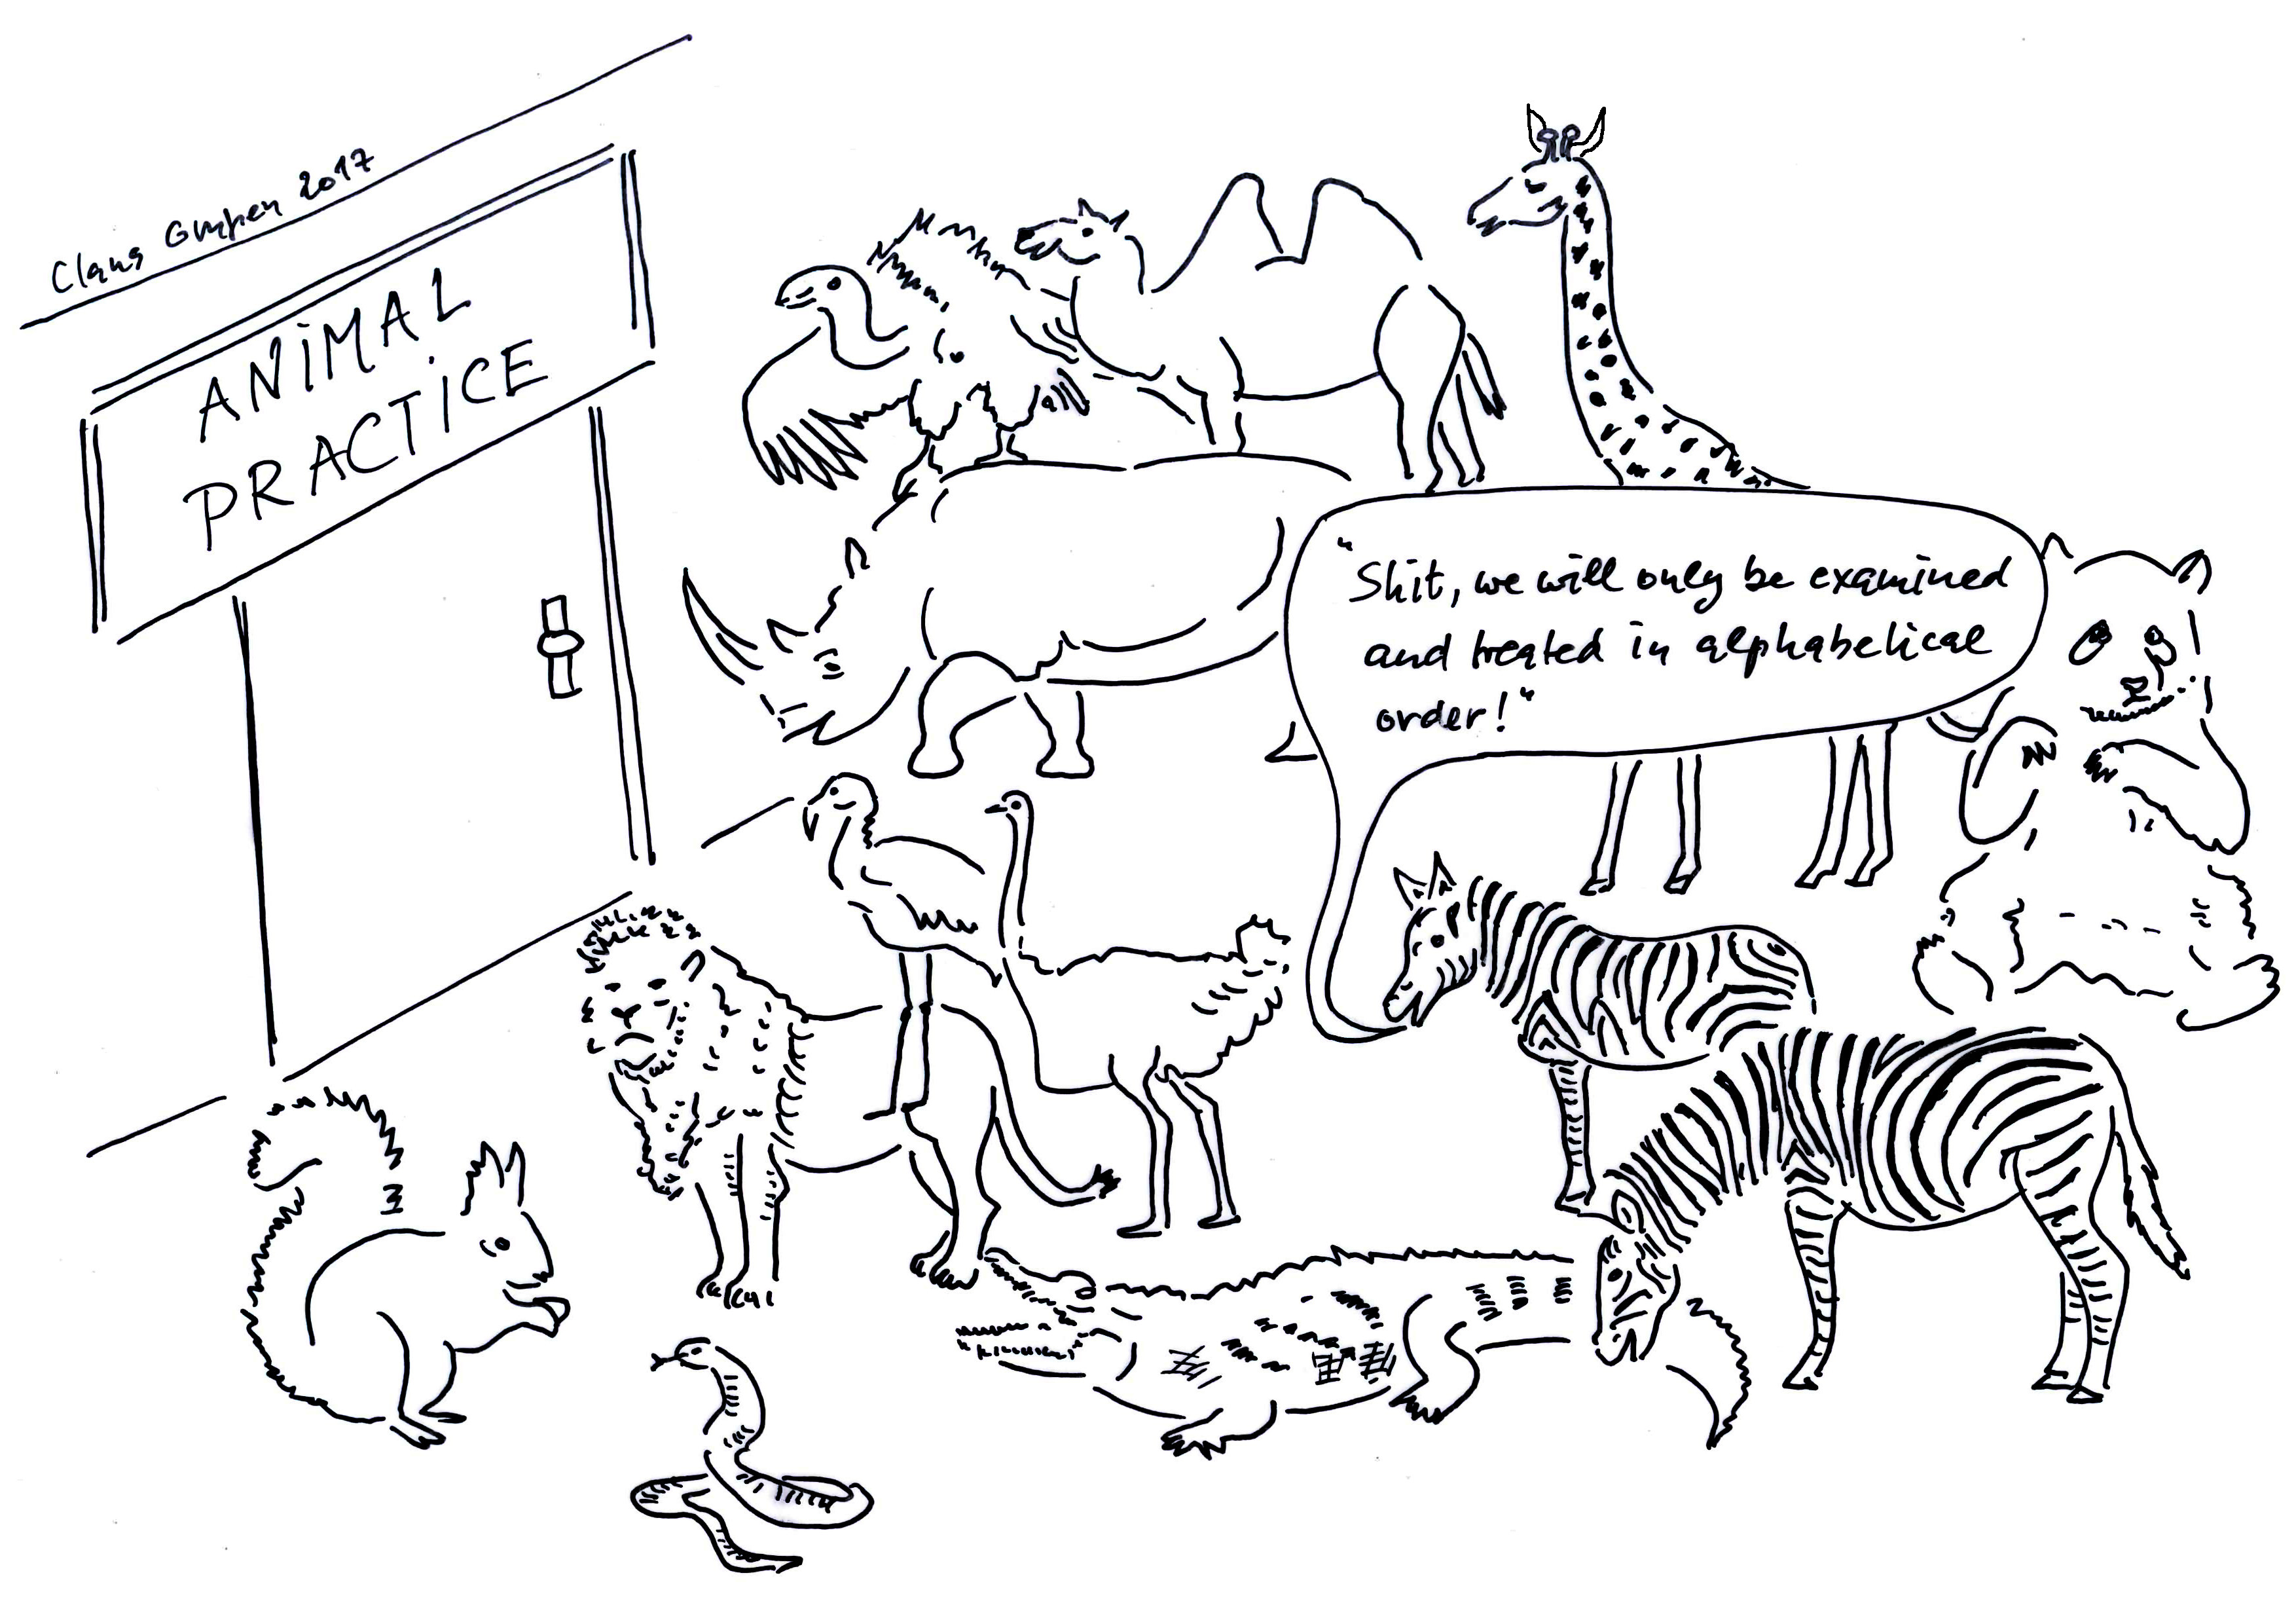 Claus Grupen 2017
ANIMAL
PRACTICE
"Shit, we will only be examined
and treated in alphabetical
order!"